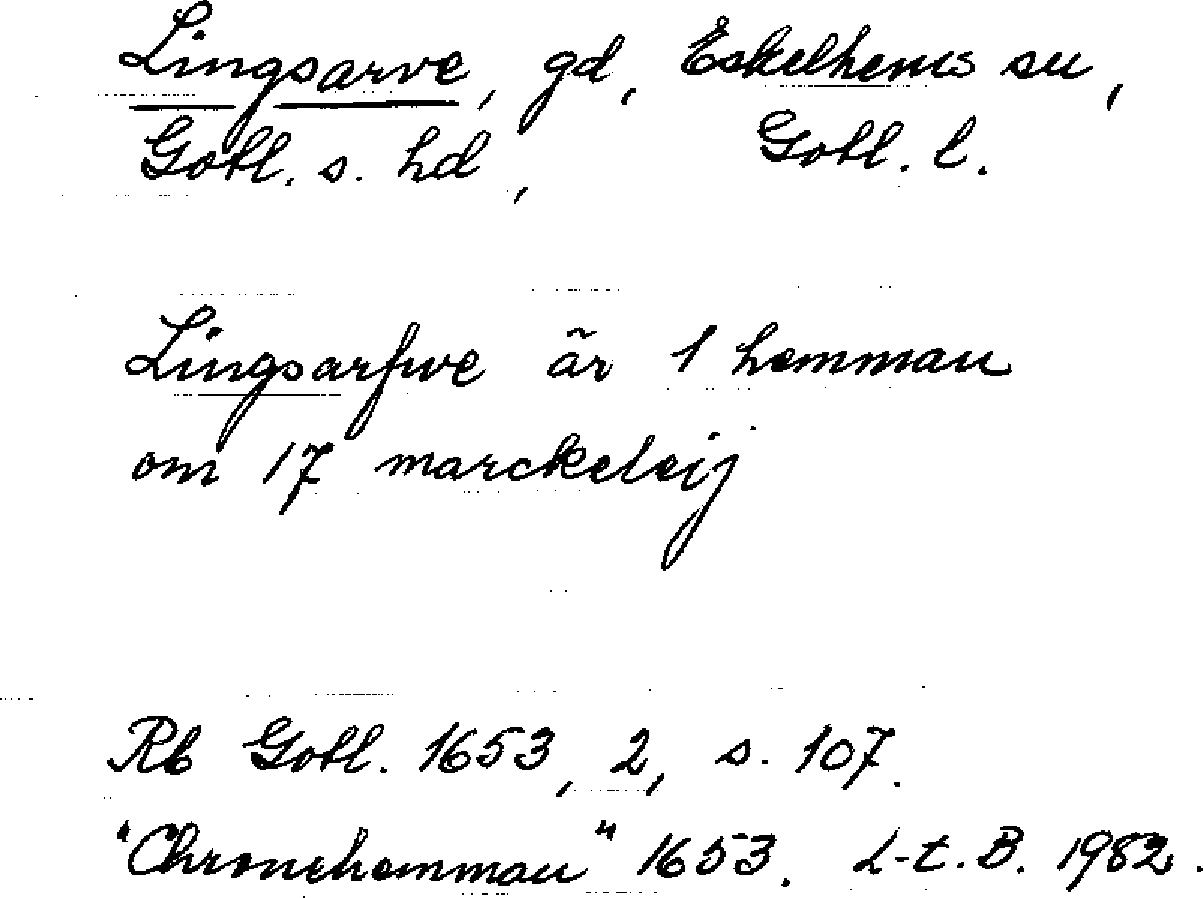 Lingsarve, gd, Eskelhems sn,
Gotl. s. hd, Gotl. l.
Lingsarfwe är 1 hemman
om 17 marckeleij
Rb Gotl. 1653, 2, s. 107.
"Chronehemman" 1653. L-t. B. 1982.